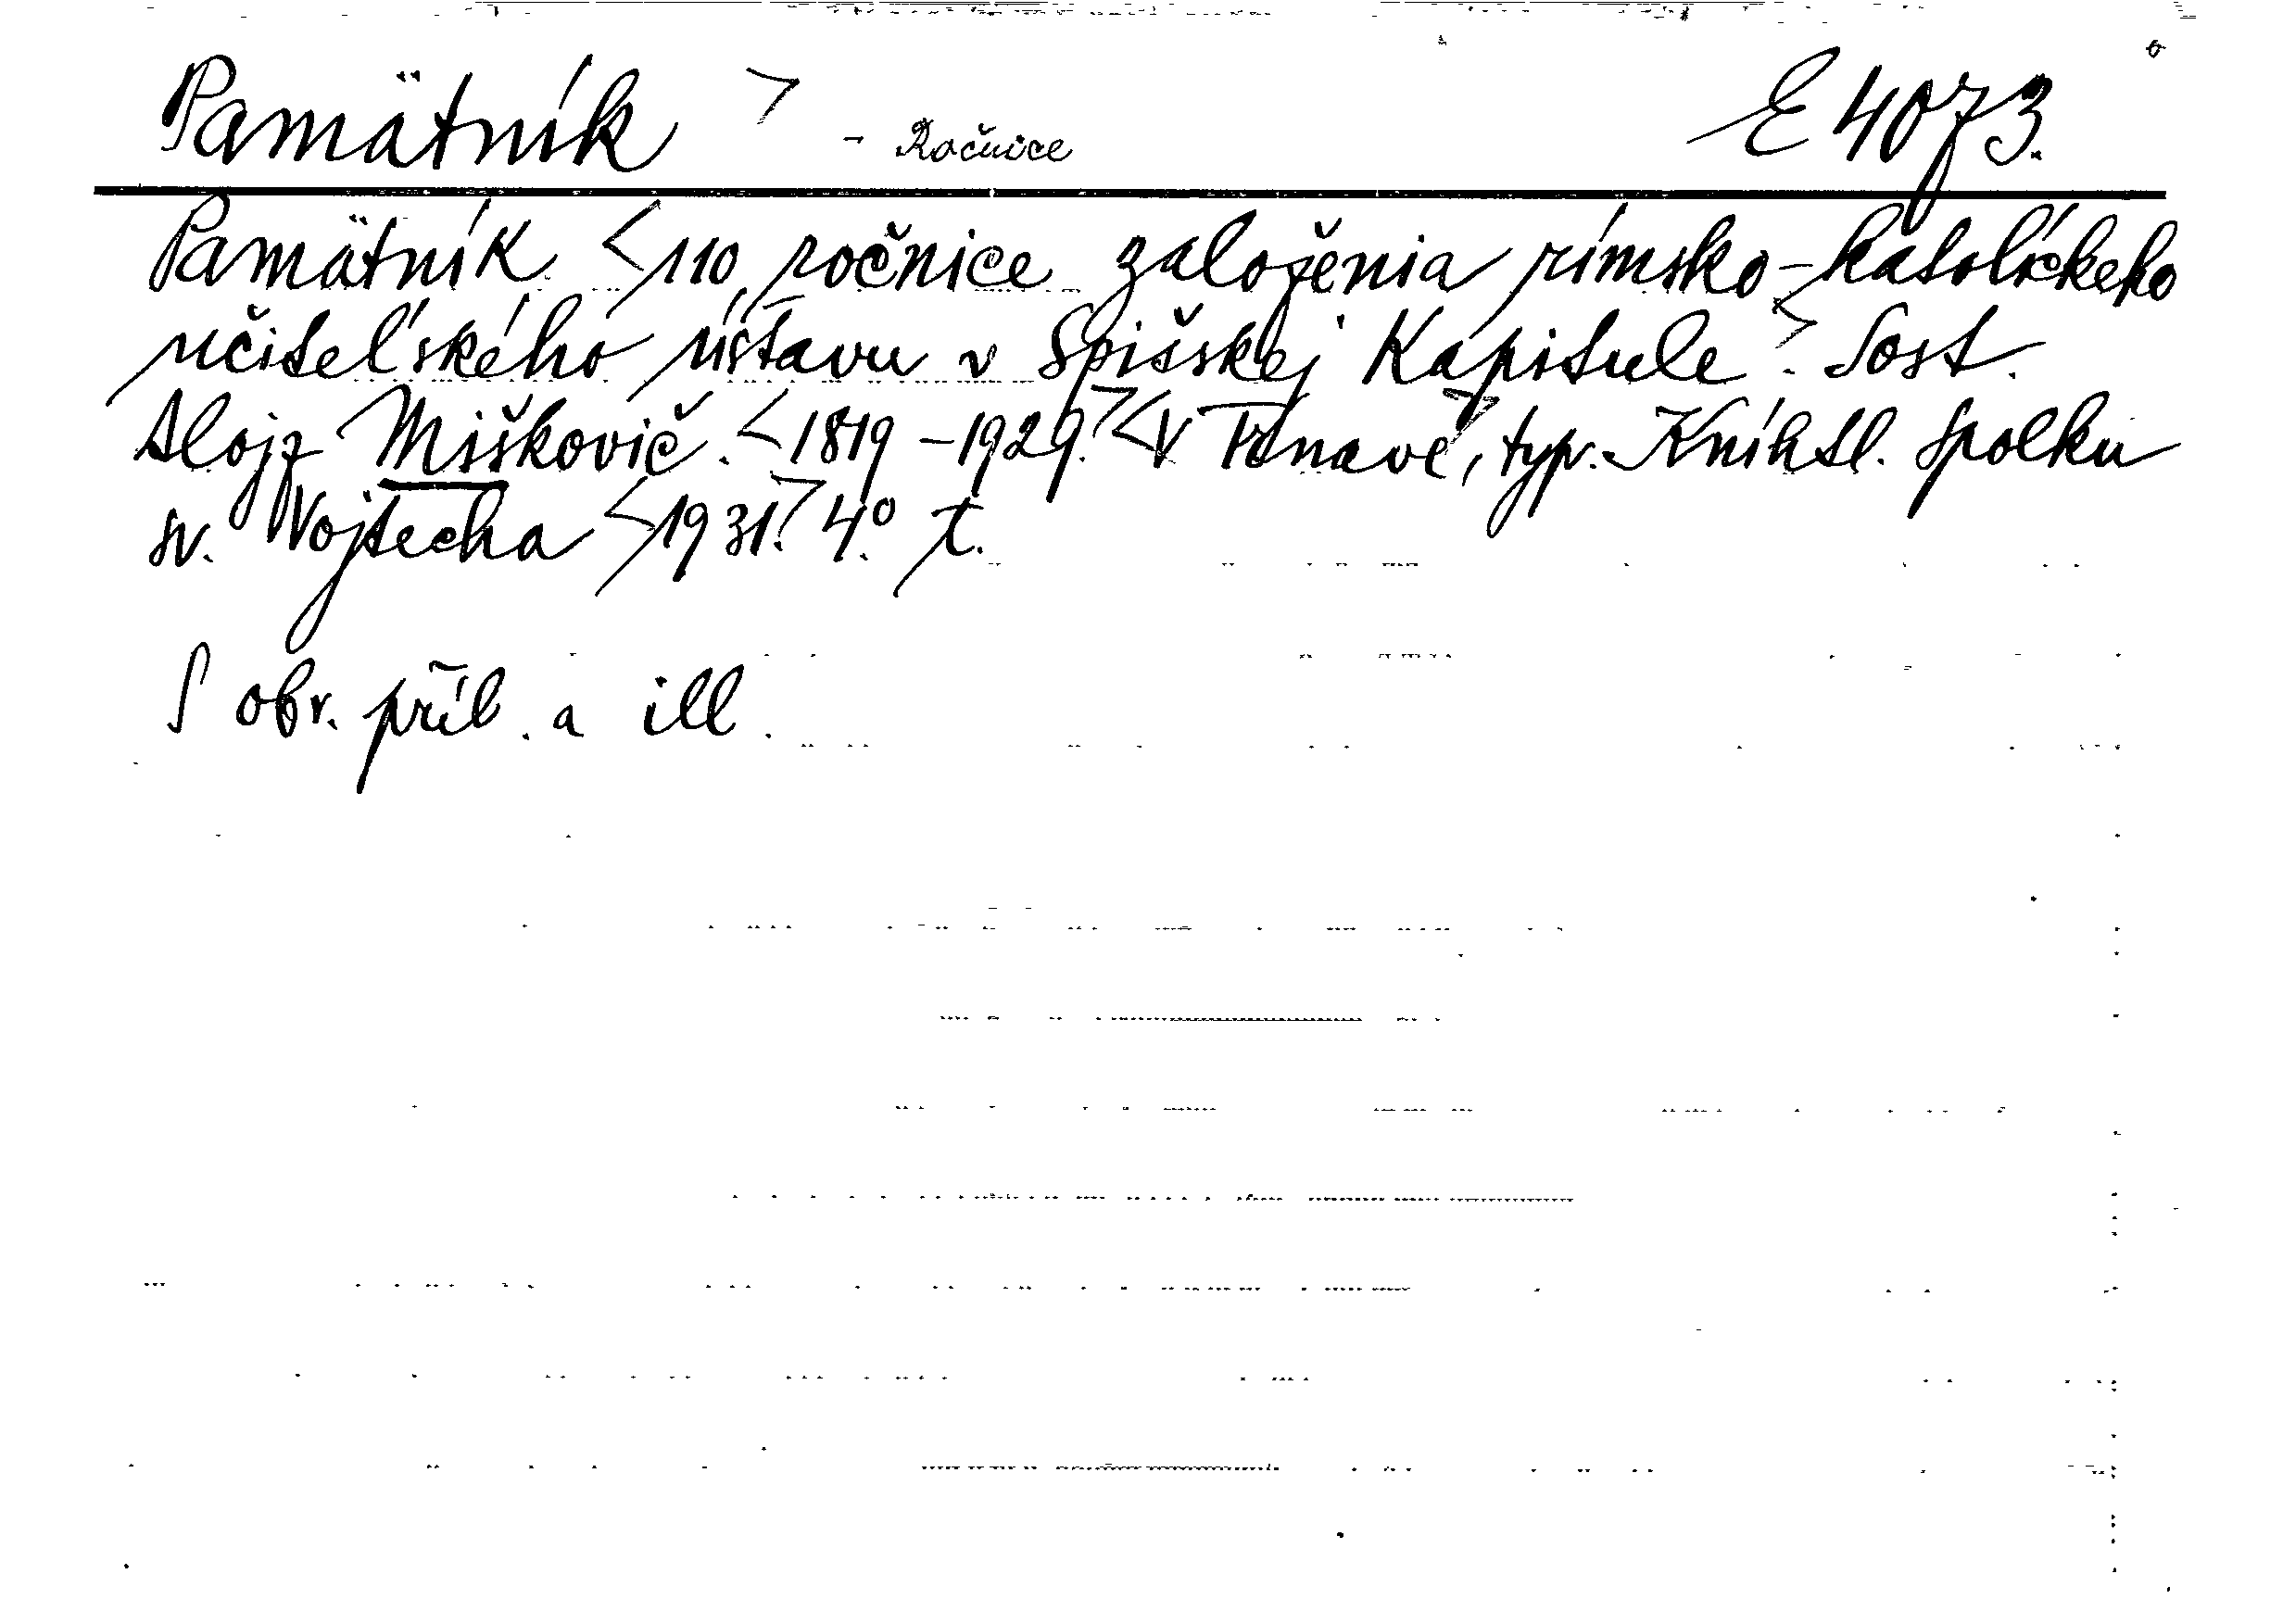 Pamätník > - Ročnice E 4073.
Pamätník <110 ročnice založenia rímsko-katolíckeho
učiteľského ústavu v Spišskej Kapitule>. Sost.
Alojz Miškovič. <1819-1929.> <V Trnave>, typ. Kníhtl. Spolku
sv. Vojtecha <1931.> 4.° t.
S obr. příl. a ill.